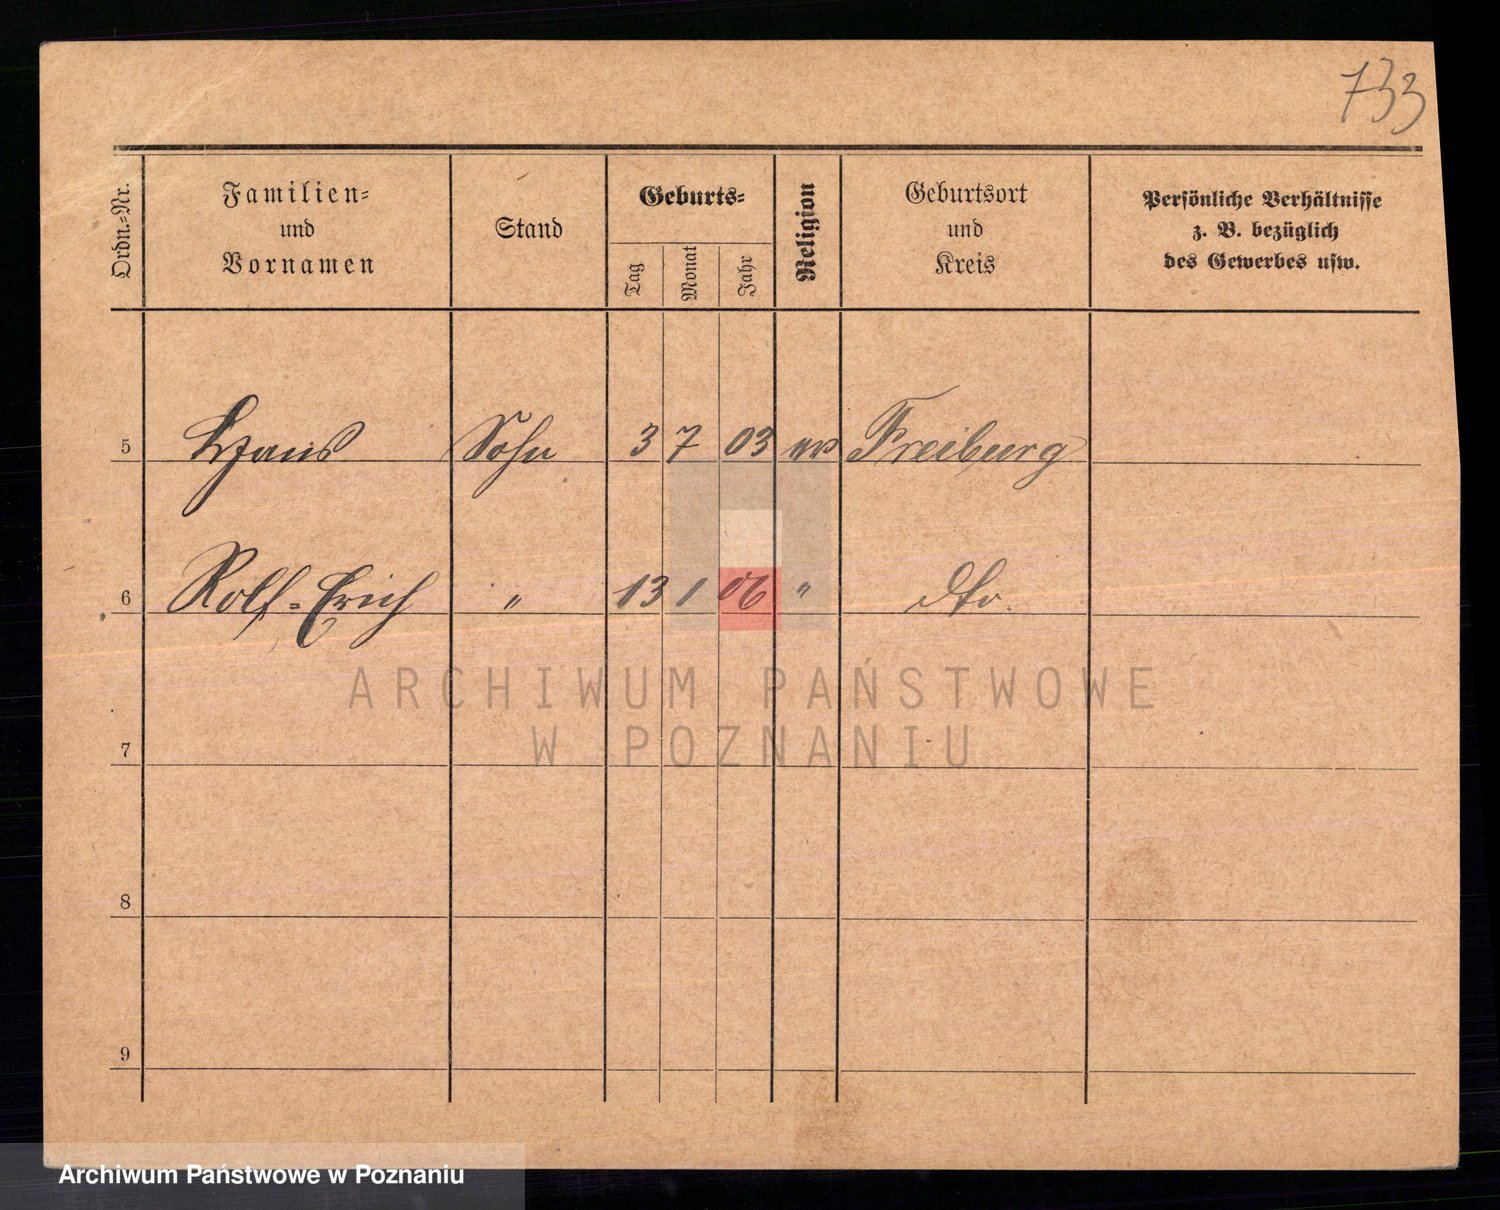 733
Ordn.-Nr. Familien- und Vornamen Stand Geburts- Tag Monat Jahr Religion Geburtsort und Kreis Persönliche Verhältnisse z. B. bezüglich des Gewerbes usw.
5 Hans Sohn 3 7 03 ev Freiburg
6 Rolf-Erich " 13 1 06 " dto.
ARCHIWUM PAŃSTWOWE
W POZNANIU
7
8
9
Archiwum Państwowe w Poznaniu